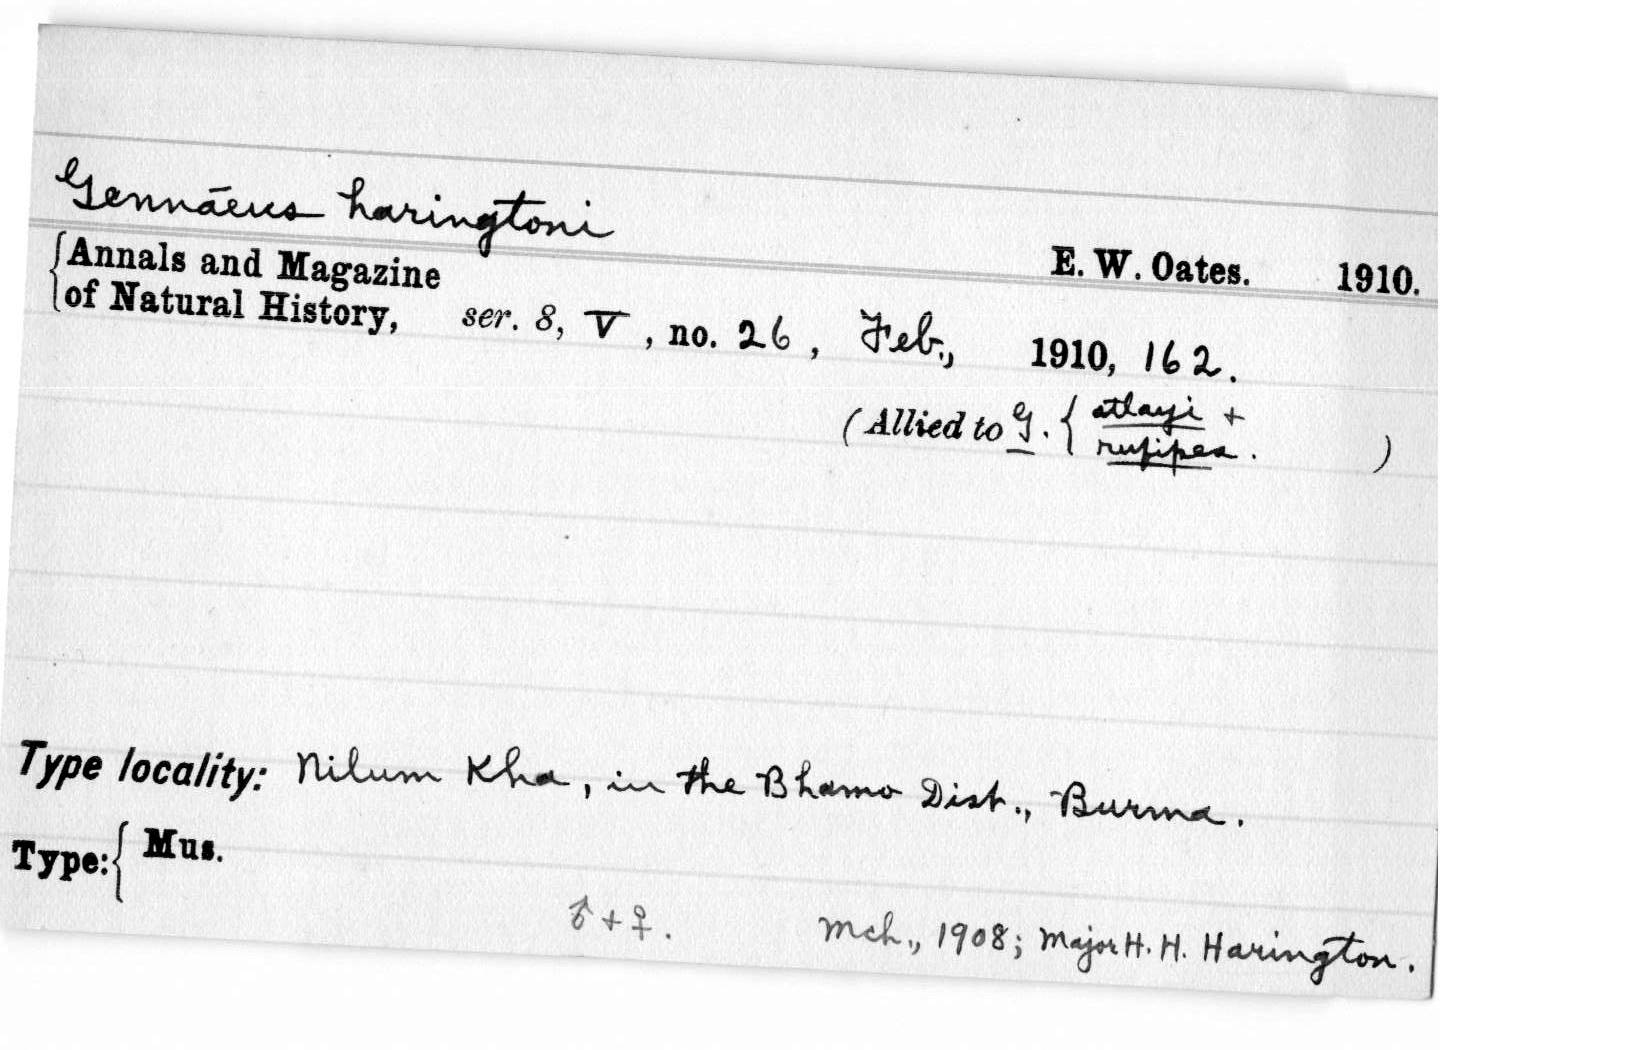 Gennāeus haringtoni
E. W. Oates. 1910.
{Annals and Magazine
of Natural History, ser. 8, V, no. 26, Feb., 1910, 162.
(Allied to G. { atlayi +
rufipes. )
Type locality: Nilum Kha, in the Bhamo Dist., Burma.
Type: { Mus.
♂ + ♀. Mch., 1908; Major H. H. Harington.